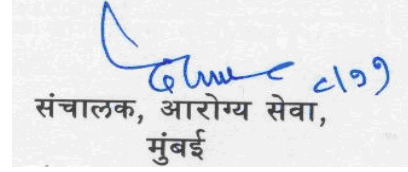 ८/११
संचालक, आरोग्य सेवा,
मुंबई